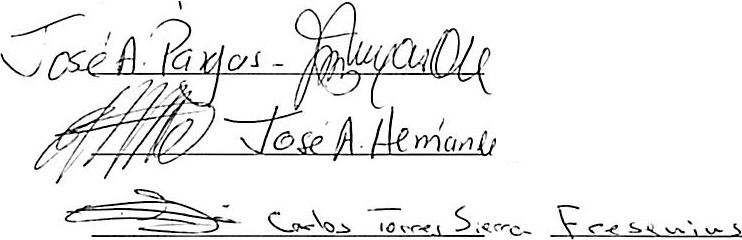 José A. Pargas -
José A. Hernande
Carlos Torres Sierra Fresenius